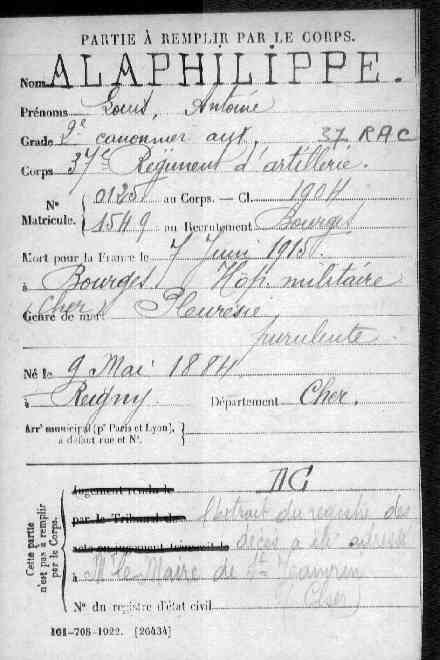 PARTIE À REMPLIR PAR LE CORPS.
Nom ALAPHILIPPE.
Prénoms Louis, Antoine
Grade 2e canonnier aux. 37 RAC
Corps 37e Régiment d'artillerie.
Nº Matricule. 0125 au Corps. — Cl. 1904
1549 au Recrutement Bourges
Mort pour la France le 7 Juin 1915
à Bourges Hôp. militaire
(Cher)
Genre de mort Pleurésie
purulente.
Né le 9 Mai 1884
à Reigny Département Cher.
Arrt municipal (pr Paris et Lyon),
à défaut rue et Nº.
Cette partie n'est pas à remplir par le Corps.
Jugement rendu le DC
par le Tribunal de Extrait du registre des
acte ou jugement transcrit le décès a été adressé
à M. le Maire de St Jeanvrin
(Cher)
Nº du registre d'état civil
101-708-1922. [26434]